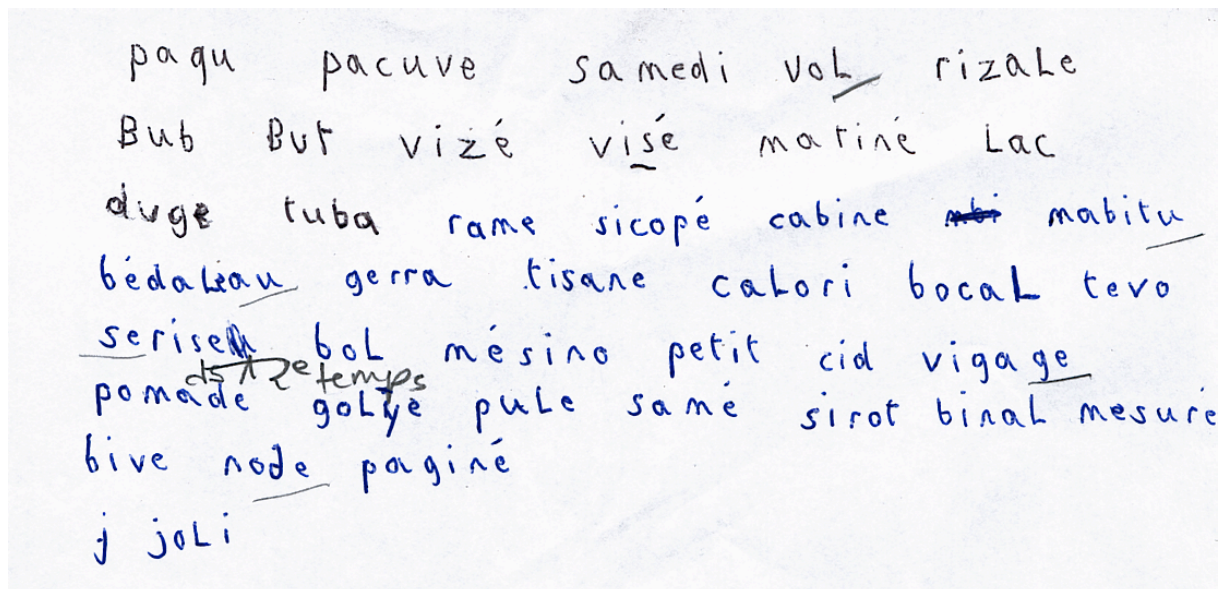 paqu pacuve samedi voL rizaLe
Bub But vizé visé matiné Lac
duge tuba rame sicopé cabine mabitu
bédaleau gerra tisane caLori bocaL tevo
serise boL mésino petit cid vigage
ds 1 2e temps
pomade golye puLe samé sirot binaL mesuré
bive node paginé
j joLi